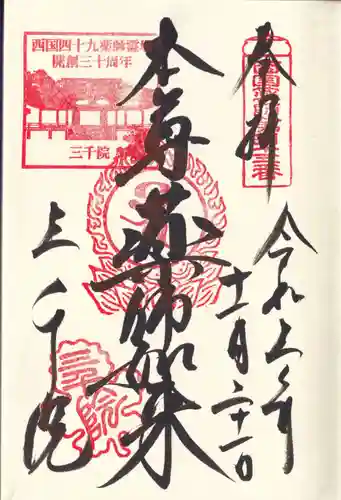 奉拝
令和三年
十一月二十一日
本尊薬師如来
三千院
西国四十九薬師霊場
開創三十周年
三千院